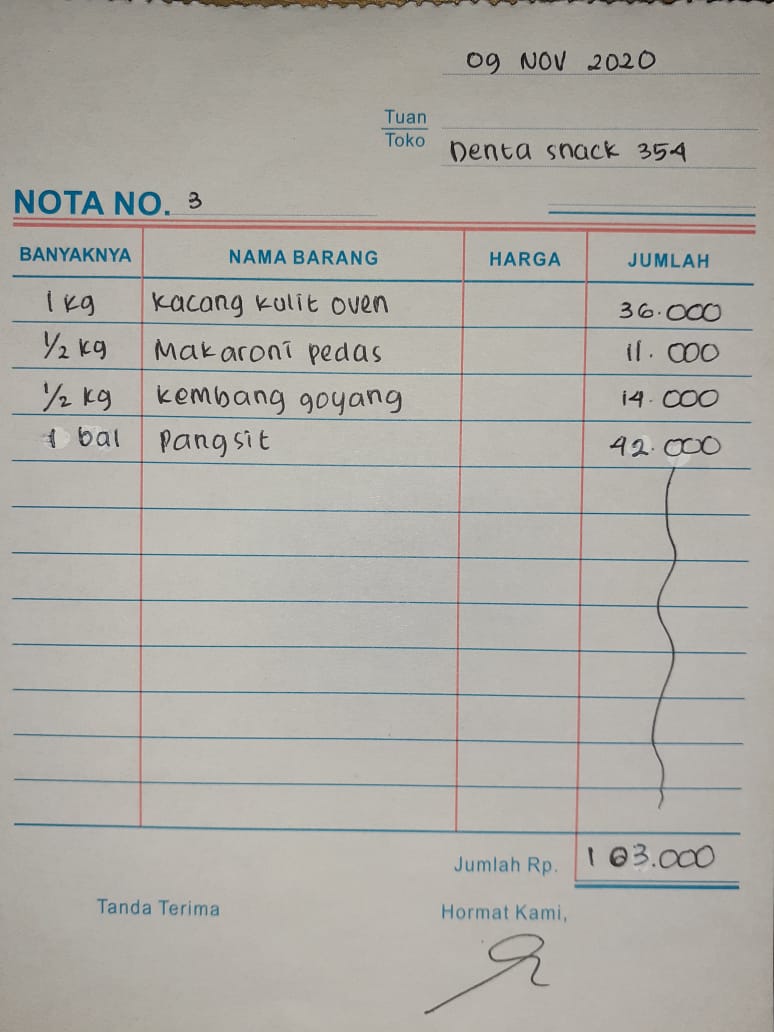 09 NOV 2020
Tuan
Toko Denta snack 354
NOTA NO. 3
BANYAKNYA NAMA BARANG HARGA JUMLAH
1 kg kacang kulit oven 36.000
1/2 kg Makaroni pedas 11.000
1/2 kg kembang goyang 14.000
1 bal pangsit 42.000
Jumlah Rp. 103.000
Tanda Terima Hormat Kami,